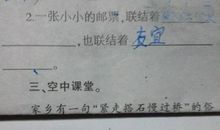 2.一张小小的邮票,联结着
,也联结着 友宜
。
三、空中课堂。
家乡有一句“紧走搭石慢过桥”的俗